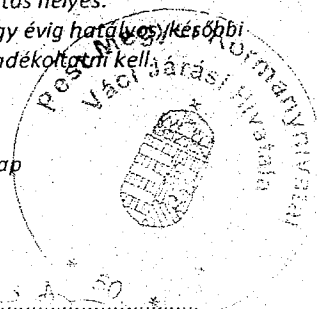 tás helyes.
gy évig hatályos, később
ndékoltatni kell.
ap
Pest Megyei Kormányhivatal
Váci Járási Hivatala